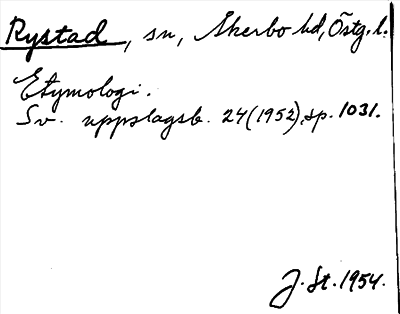 Rystad, sn, Åkerbo hd, Östg. l.
Etymologi.
Sv. uppslagsb. 24 (1952), sp. 1031.
J. St. 1954.